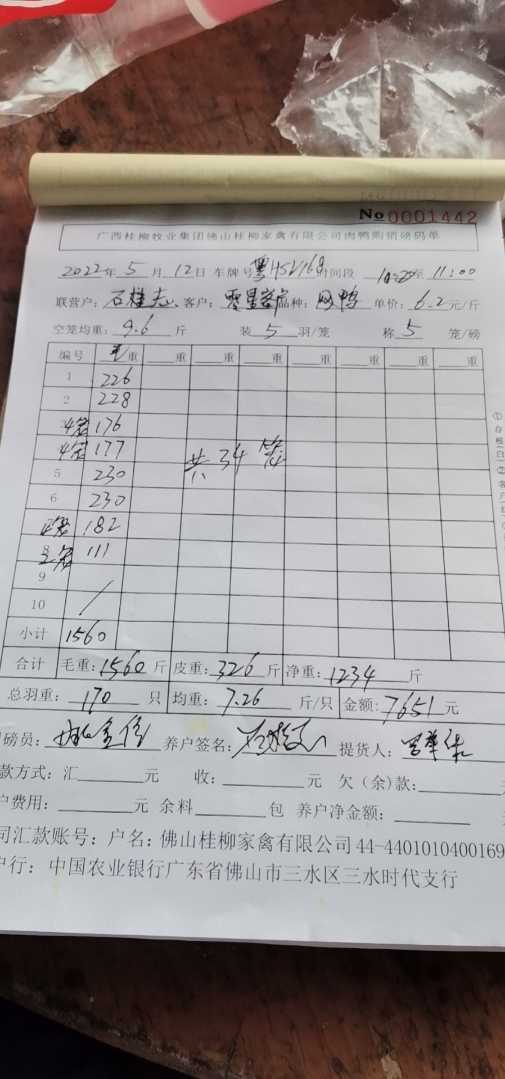 No 0001442
广西桂柳牧业集团佛山桂柳家禽有限公司肉鸭购销磅码单
2022年 5 月 12日 车牌号 时间段 至 11:00
联营户: 客户: 品种: 单价: 6.2元/斤
空笼均重: 9.6 斤 装 5 羽/笼 称 5 笼/磅
编号 毛重 重 重 重 重 重 重 重
1 226
2 228
4笼 176
4笼 177
5 230
共34笼
6 230
182
8 111
9
10 /
小计 1560
合计 毛重: 1560 斤 皮重: 326 斤 净重: 1234 斤
总羽重: 170 只 均重: 7.26 斤/只 金额: 7651 元
磅员: 养户签名: 提货人:
款方式: 汇 元 收: 元 欠(余)款:
户费用: 元 余料 包 养户净金额:
司汇款账号: 户名: 佛山桂柳家禽有限公司 44-4401010400169
户行: 中国农业银行广东省佛山市三水区三水时代支行
①存根(白)②客户(红)